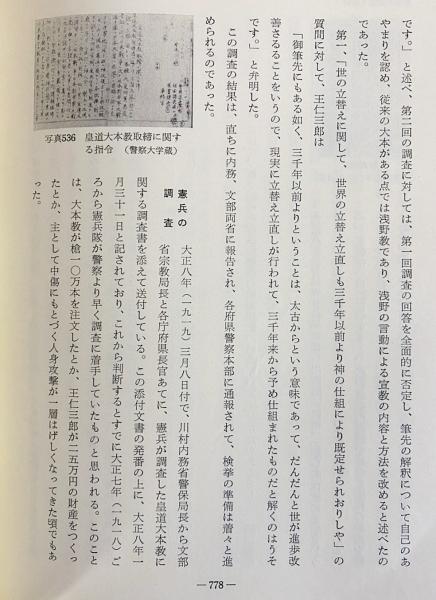 です。」と述べ、第二回の調査に対しては、第一回調査の回答を全面的に否定し、筆先の解釈について自己のあ
やまりを認め、従来の大本がある点では浅野教であり、浅野の言動による宣教の内容と方法を改めると述べたの
であった。
第一、「世の立替えに関して、世界の立替え立直しも三千年以前より神の仕組により既定せられおりしや」の
質問に対して、王仁三郎は
「御筆先にもある如く、三千年以前よりということは、太古からという意味であって、だんだんと世が進歩改
善さるることをいうので、現実に立替え立直しが行われて、三千年来から予め仕組まれたものだと解くのはうそ
です。」と弁明した。
この調査の結果は、直ちに内務、文部両省に報告され、各府県警察本部に通報されて、検挙の準備は着々と進
められるのであった。
写真536 皇道大本教取締に関す
る指令 (警察大学蔵)
憲兵の
調査
大正八年(一九一九)三月八日付で、川村内務省警保局長から文部
省宗教局長と各庁府県長官あてに、憲兵が調査した皇道大本教に
関する調査書を添えて送付している。この添付文書の発番の上に、大正八年一
月三十一日と記されており、これから判断するとすでに大正七年(一九一八)ご
ろから憲兵隊が警察より早く調査に着手していたものと思われる。このこと
は、大本教が槍一〇万本を注文したとか、王仁三郎が二五万円の財産をつくっ
たとか、主として中傷にもとづく人身攻撃が一層はげしくなってきた頃でもあ
った。
—778—